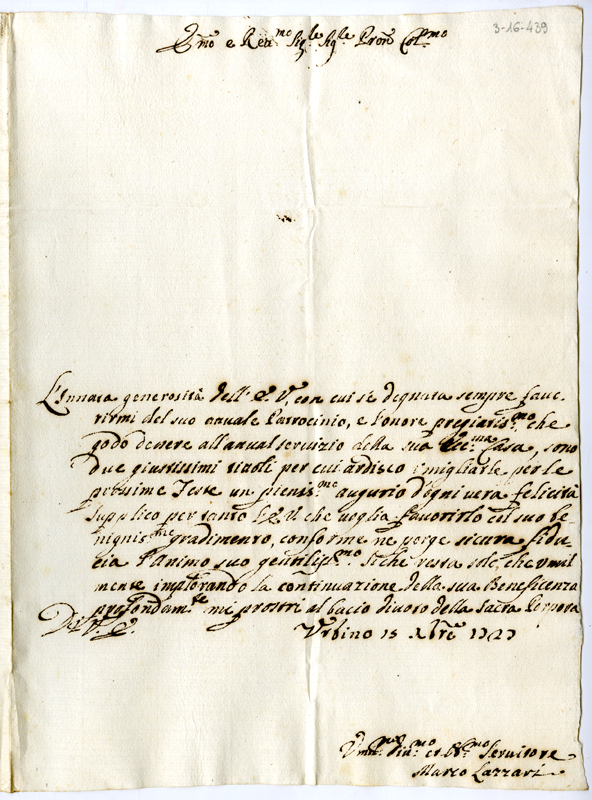 3-16-439
E.mo e Rev.mo Sig.re Sig.re Pron Col.mo
L'Innata generosità dell' E. V. con cui si è degnata sempre favo-
rirmi del suo Patrocinio, e l'onore pregiatis.mo che
godo d'essere all'anual servizio della sua Ecc.ma Casa, sono
due giustissimi titoli per cui ardisco umigliarle per le
prossime Feste un pieniss.mo augurio d'ogni vera felicità
Supplico per tanto l'E. V. che voglia favorirlo col suo be
nigniss.mo gradimento, conforme ne porge sicura fidu-
cia l'Animo suo gentiliss.mo. Siche resta solo, che umil
mente implorando la continuazione della sua Beneficenza
profondam.te mi prostri al bacio divoto della Sacra Porpora
Dell' V. E. Urbino 15 Xbre 1727
Um.mo Div.mo et Ob.mo Servitore
Marco Lazzari